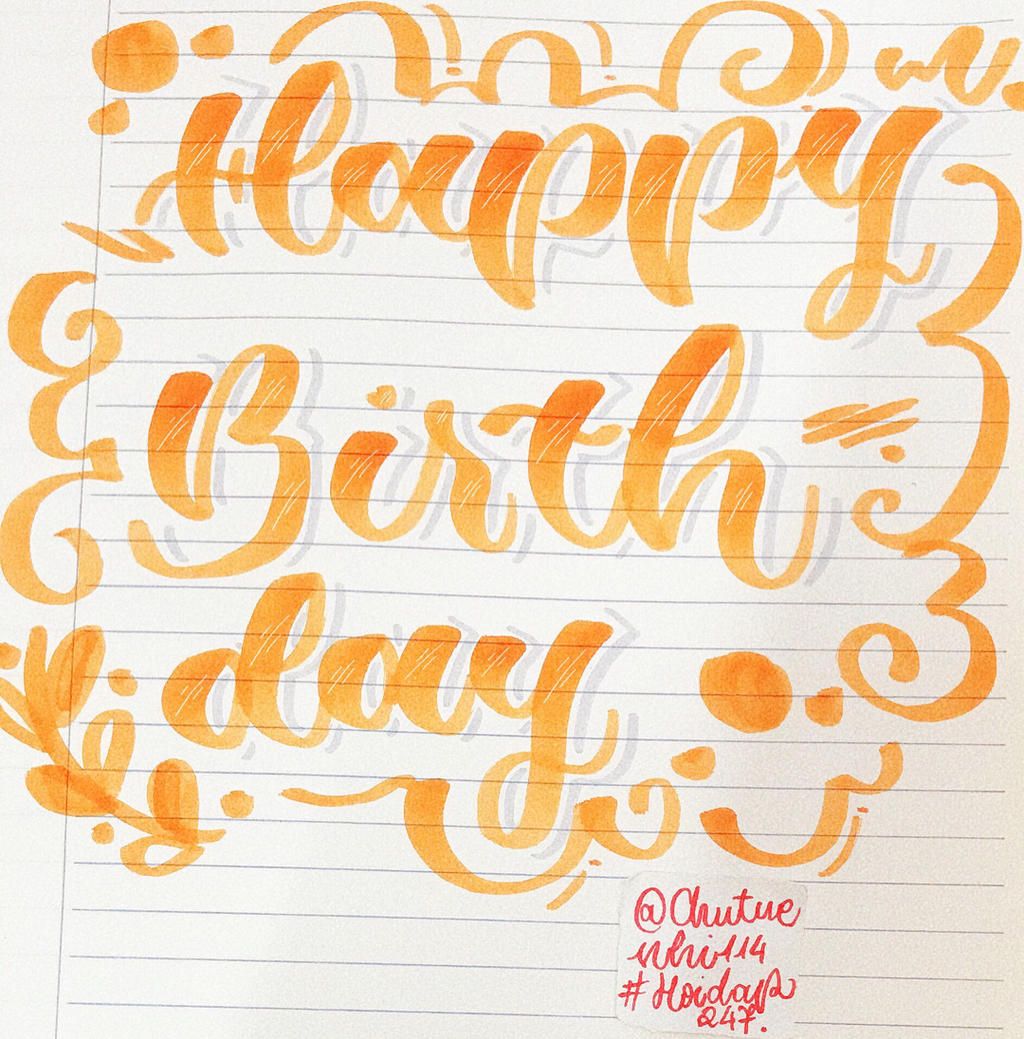 Happy
Birth
day
@Chutue
nhi114
#Hoidap
247.